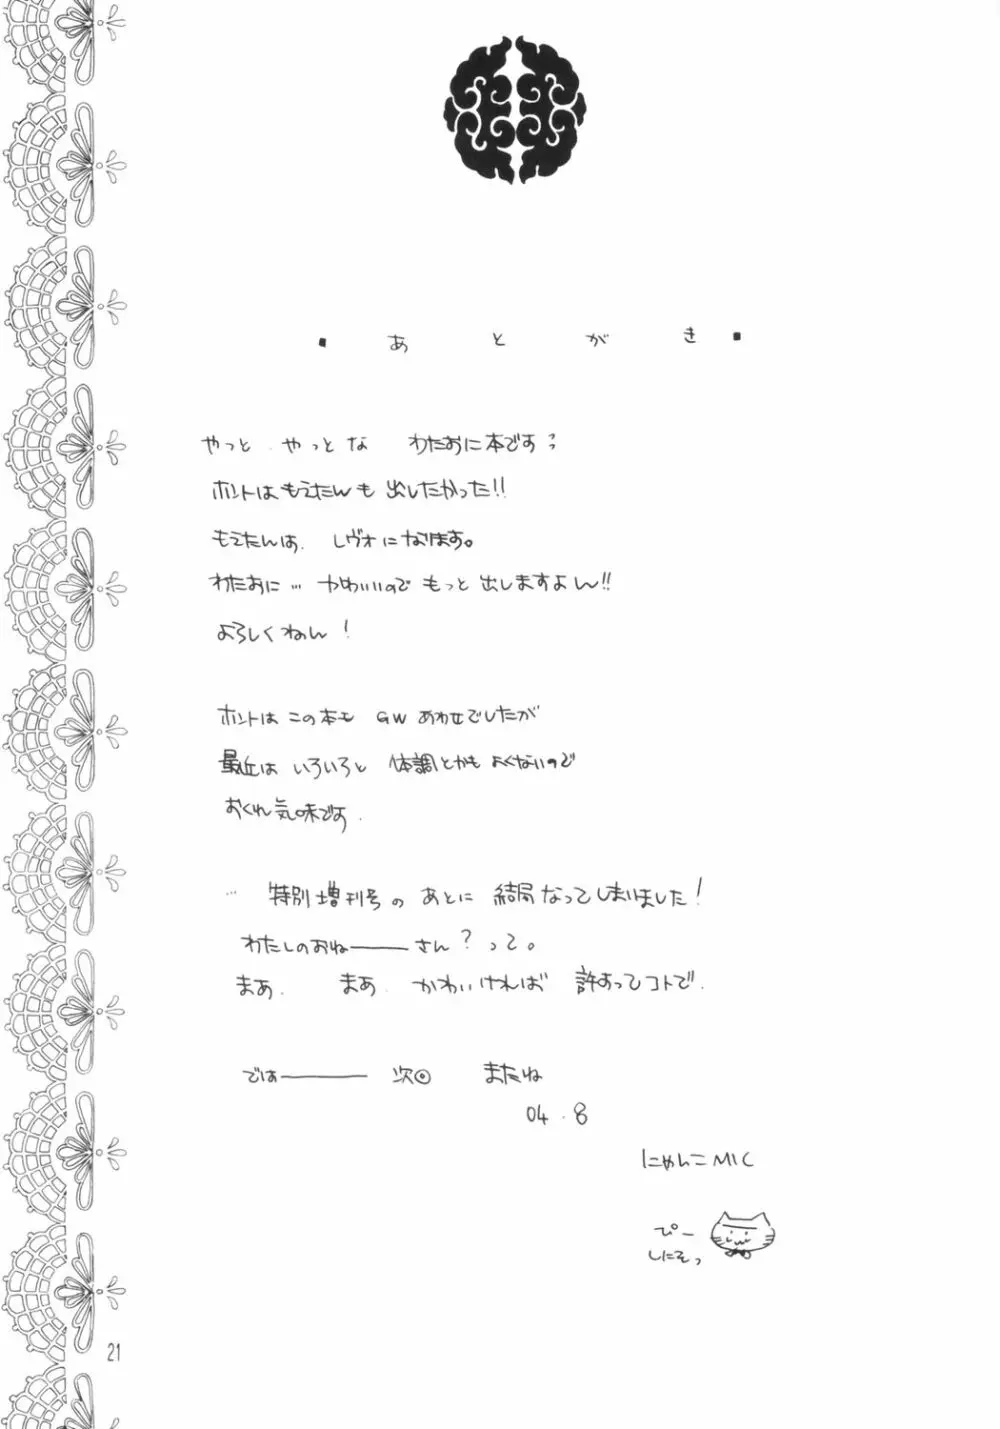 ・あとがき・
やっと、やっとな わたおに本です
ホントはもえたんも出したかった!!
もえたんは、レヴォになります。
わたおに…かわいいのでもっと出しますよん!!
よろしくねん!
ホントはこの本も GWあわせでしたが
最近は いろいろと 体調とかもよくないので
おくれ気味です.
… 特別増刊号の あとに 結局なってしまいました!
わたしのおね――さん?って。
まあ. まあ. かわいければ 許すってコトで.
では―― 次◎ またね
04.8
にゃんこMIC
ぴー
しにそっ
21